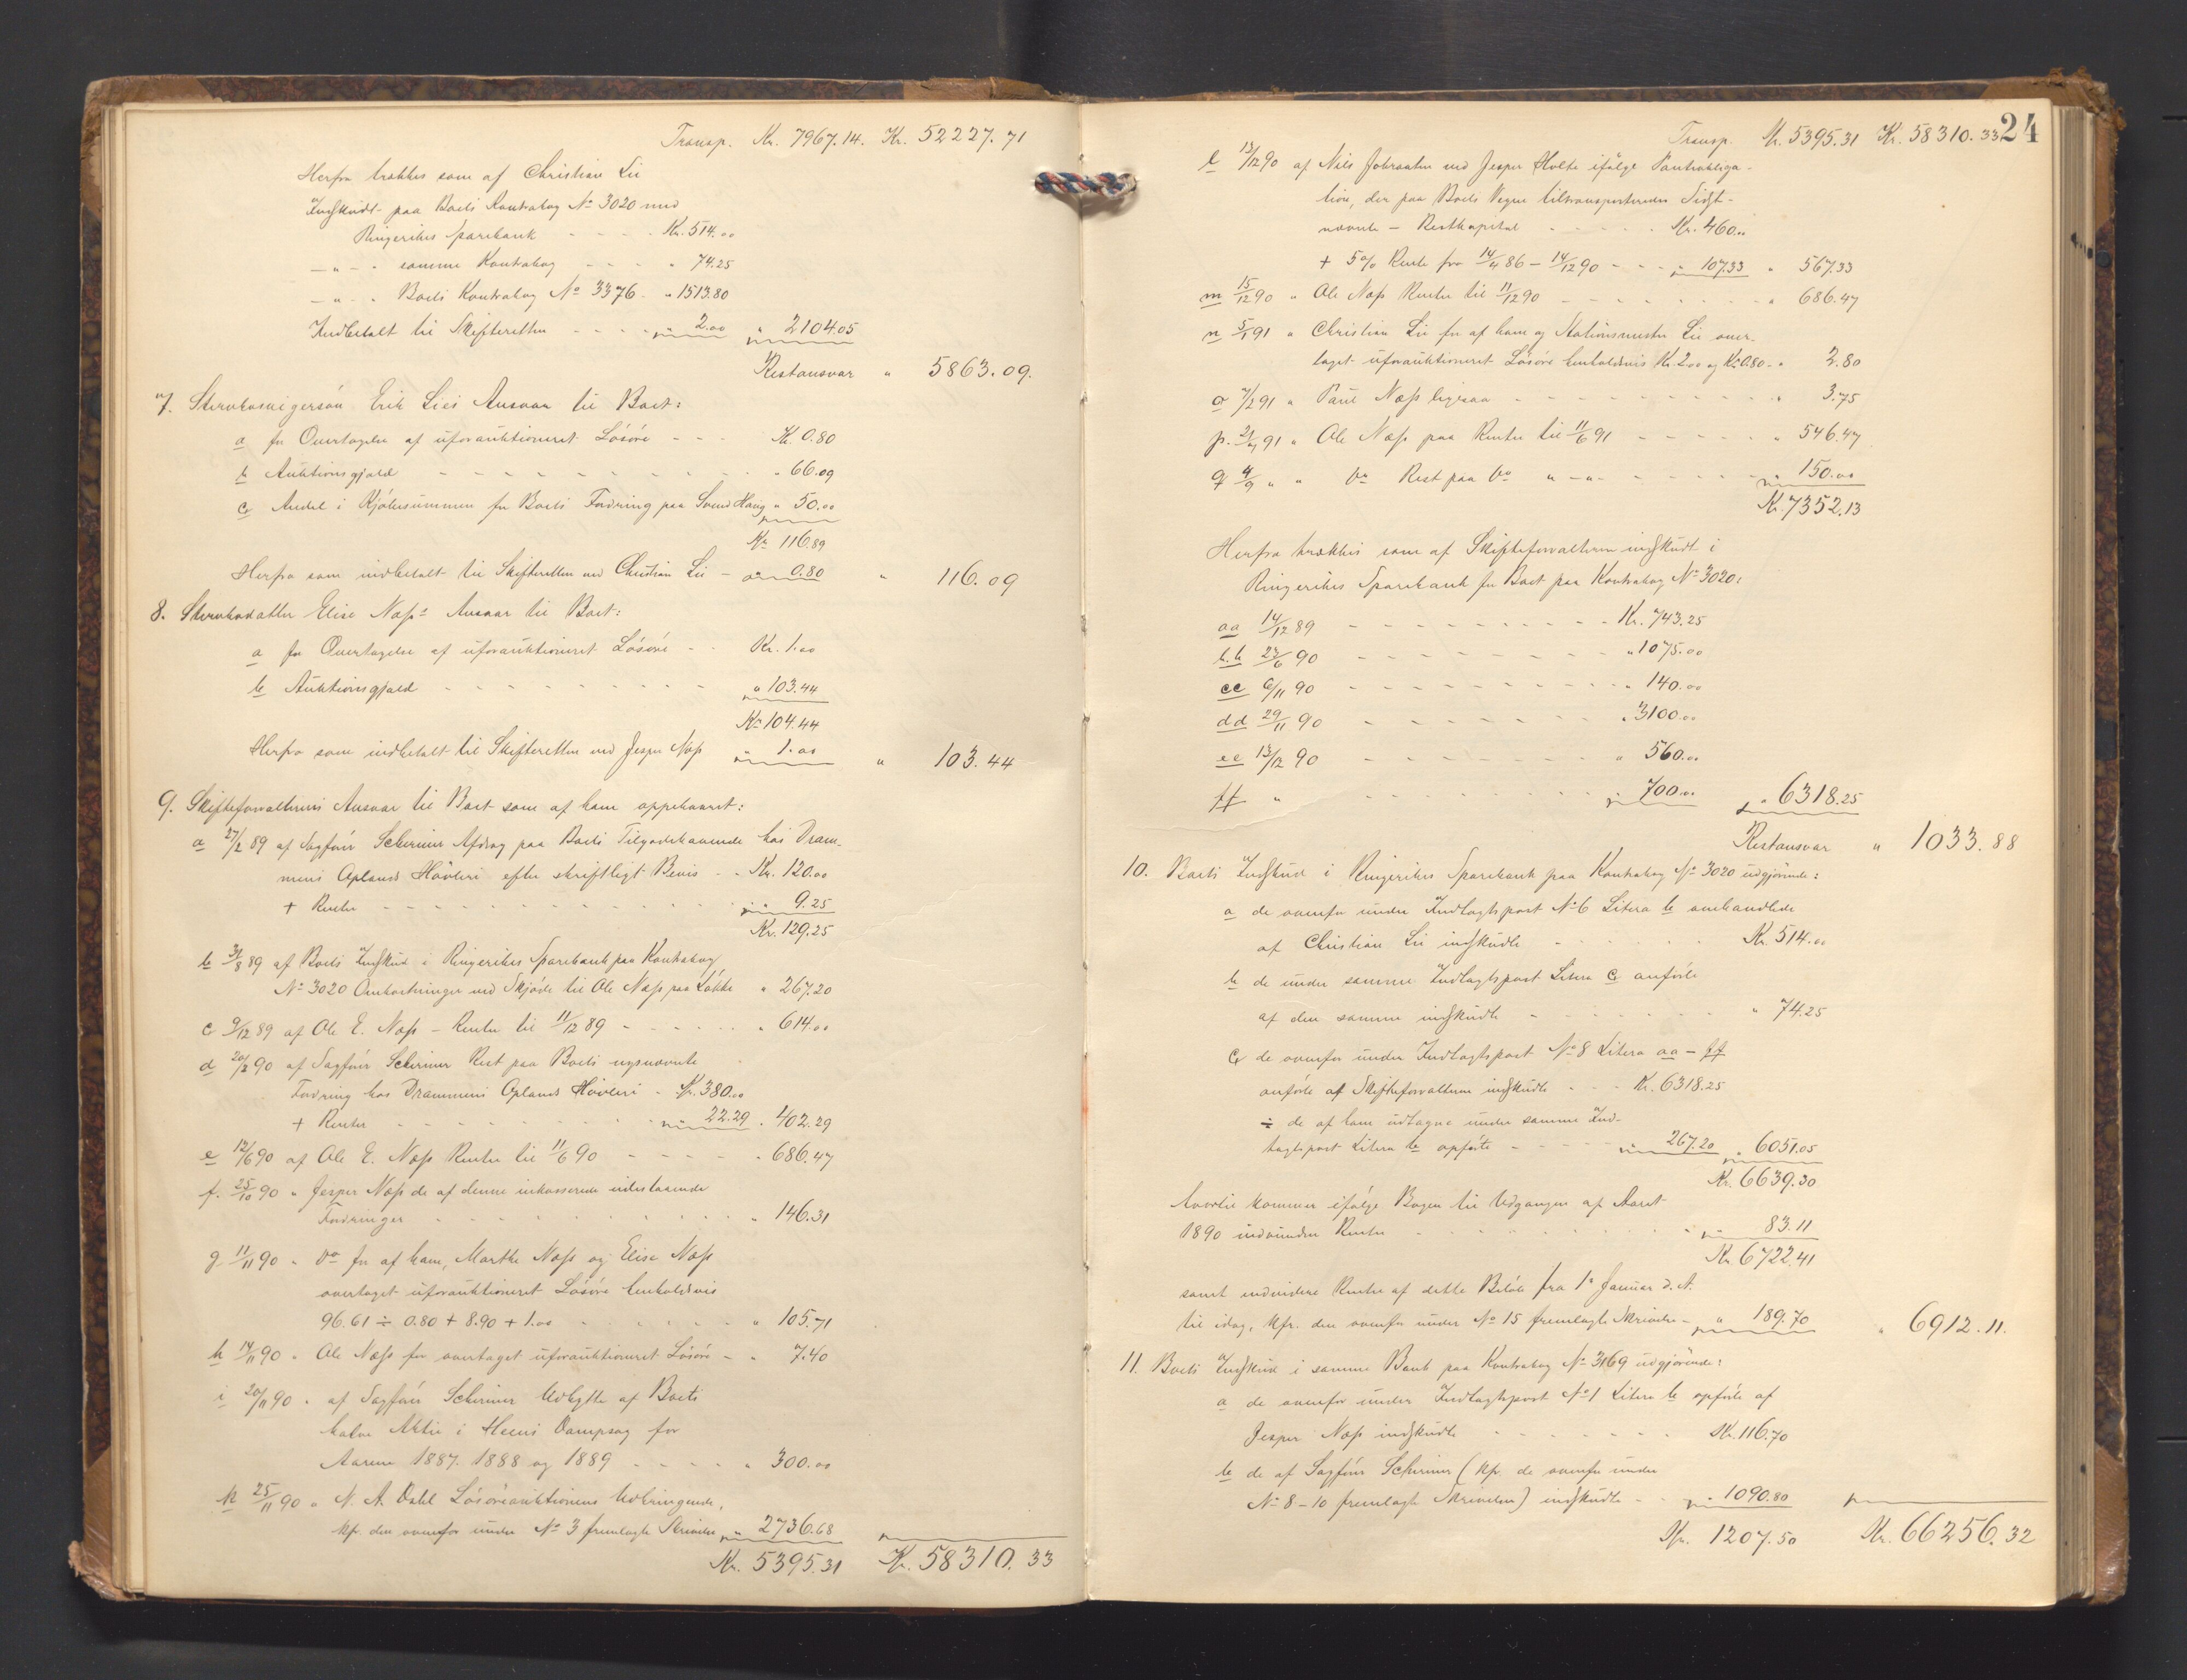 Transp. Kr. 7967.14. Kr. 52227.71
Herfra trækkes som af Christian Lie
Indskudt paa Boets Kontrabog No 3020 med
Ringerikes Sparebank - - - - Kr. 514.00
— " — samme Kontrabog - - - " 74.25
— " — Boets Kontrabog No 3376 - " 1513.80
Indbetalt til Skifteretten - - - - " 2.00 " 2104.05
Restansvar " 5863.09.
7. Stervbosvigersøn Erik Lies Ansvar til Boet:
a for Overtagelse af uforauktioneret Løsøre - - - Kr. 0.80
b Auktionsgjæld - - - - - - - - " 66.09
c Andel i Kjøbesummen for Boets Fordring paa Svend Haug " 50.00
Kr. 116.89
Herfra som indbetalt til Skifteretten ved Christian Lie - " 0.80 " 116.09
8. Stervbodatter Elise Næss Ansvar til Boet:
a for Overtagelse af uforauktioneret Løsøre - - Kr. 1.00
b Auktionsgjæld - - - - - - - " 103.44
Kr. 104.44
Herfra som indbetalt til Skifteretten ved Jesper Næss " 1.00 " 103.44
9. Skifteforvalterens Ansvar til Boet som af ham oppebaaret:
a 27/2 89 af Sagfører Scheriner Afdrag paa Boets Tilgodehavende hos Dram-
mens Oplands Høvleri efter skriftligt Bevis - - Kr. 120.00
+ Renter - - - - - - - - " 9.25
Kr. 129.25
b 31/8 89 af Boets Indskud i Ringerikes Sparebank paa Kontrabog
No 3020 Omkostninger ved Skjøde til Ole Næss paa Løkke " 267.20
c 9/12 89 af Ole E. Næss - Renter til 11/12 89 - - - - - " 614.00
d 20/2 90 af Sagfører Scheriner Rest paa Boets nysnævnte
Fordring hos Drammens Oplands Høvleri - Kr. 380.00
+ Renter - - - - - - " 22.29 " 402.29
e 12/6 90 af Ole E. Næss Renter til 11/6 90 - - - - - " 686.47
f. 25/10 90 " Jesper Næss de af denne inkasserede udestaaende
Fordringer - - - - - - - - - " 146.31
g 11/11 90 " Do for af ham, Marthe Næss og Elise Næss
overtaget uforauktioneret Løsøre henholdsvis
96.61 ÷ 0.80 + 8.90 + 1.00 - - - - - " 105.71
h 14/11 90 " Ole Næss for overtaget uforauktioneret Løsøre - " 7.40
i 20/11 90 " af Sagfører Scheriner Udbytte af Boets
halve Aktie i Heens Dampsag for
Aarene 1887. 1888 og 1889 - - - - " 300.00
k 25/11 90 " N. A. Dahl Løsøreauktionens Udbringende,
kfr. den ovenfor under No 3 fremlagte Skrivelse " 2736.68
Kr. 5395.31 Kr. 58310.33
24
Transp. Kr. 5395.31 Kr. 58310.33
l 13/12 90 af Nils ved Jesper Holte ifølge Pantobliga-
tion, der paa Boets Vegne tiltransporteredes Sidst-
nævnte - Restkapital - - - - - Kr. 460.00
+ 5 % Rente fra 14/4 86 - 14/12 90 - - - " 107.33 " 567.33
m 15/12 90 " Ole Næss Renter til 11/12 90 - - - - - - - " 686.47
n 5/1 91 " Christian Lie for af ham og Stationsmester Lie over-
taget uforauktioneret Løsøre henholdsvis Kr. 2.00 og Kr. 0.80 - " 2.80
o 7/2 91 " Paul Næss ligesaa - - - - - - - - - " 3.75
p. 21/7 91 " Ole Næss paa Renter til 11/6 91 - - - - - " 546.47
q 4/9 " " Do Rest paa Do " — " — - - - - " 150.00
Kr. 7352.13
Herfra trækkes som af Skifteforvalteren indskudt i
Ringerikes Sparebank for Boet paa Kontrabog No 3020:
aa 14/12 89 - - - - - - - - - Kr. 743.25
b.b 23/6 90 - - - - - - - - - " 1075.00
cc 6/11 90 - - - - - - - - - " 140.00
dd 29/11 90 - - - - - - - - " 3100.00
ee 13/12 90 - - - - - - - - " 560.00
ff " - - - - - - - - " 700.00 " 6318.25
Restansvar " 1033.88
10. Boets Indskud i Ringerikes Sparebank paa Kontrabog No 3020 udgjørende:
a de ovenfor under Indtægtspost No 6 Litera b omhandlede
af Christian Lie indskudte - - - - - - Kr. 514.00
b de under samme Indtægtspost Litera c anførte
af den samme indskudte - - - - - - - " 74.25
c de ovenfor under Indtægtspost No 8 Litera aa - ff
anførte af Skifteforvalteren indskudte - - - Kr. 6318.25
÷ de af ham udtagne under samme Ind-
tægtspost Litera b opførte - - - - - " 267.20 " 6051.05
Kr. 6639.30
hvortil kommer ifølge Bogen til Udgangen af Aaret
1890 indvundne Renter - - - - - - - " 83.11
Kr. 6722.41
samt endvidere Renter af dette Beløb fra 1ste Januar d. A.
til idag, kfr. den ovenfor under No 15 fremlagte Skrivelse - " 189.70 " 6912.11.
11. Boets Indskud i samme Bank paa Kontrabog No 3169 udgjørende:
a de ovenfor under Indtægtspost No 1 Litera b opførte af
Jesper Næss indskudte - - - - - - - Kr. 116.70
b de af Sagfører Scheriner (kfr. de ovenfor under
No 8 - 10 fremlagte Skrivelser) indskudte - - " 1090.80
Kr. 1207.50 Kr. 66256.32